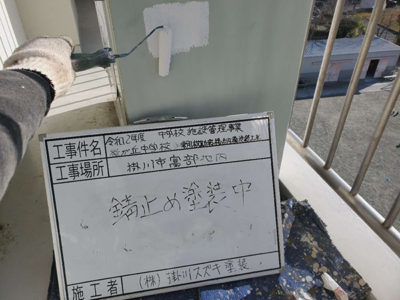 工事件名 令和2年度 中学校 施設管理事業
丘中学校
工事場所 掛川市富部地内
錆止め塗装中
施工者 (株)掛川スズキ塗装